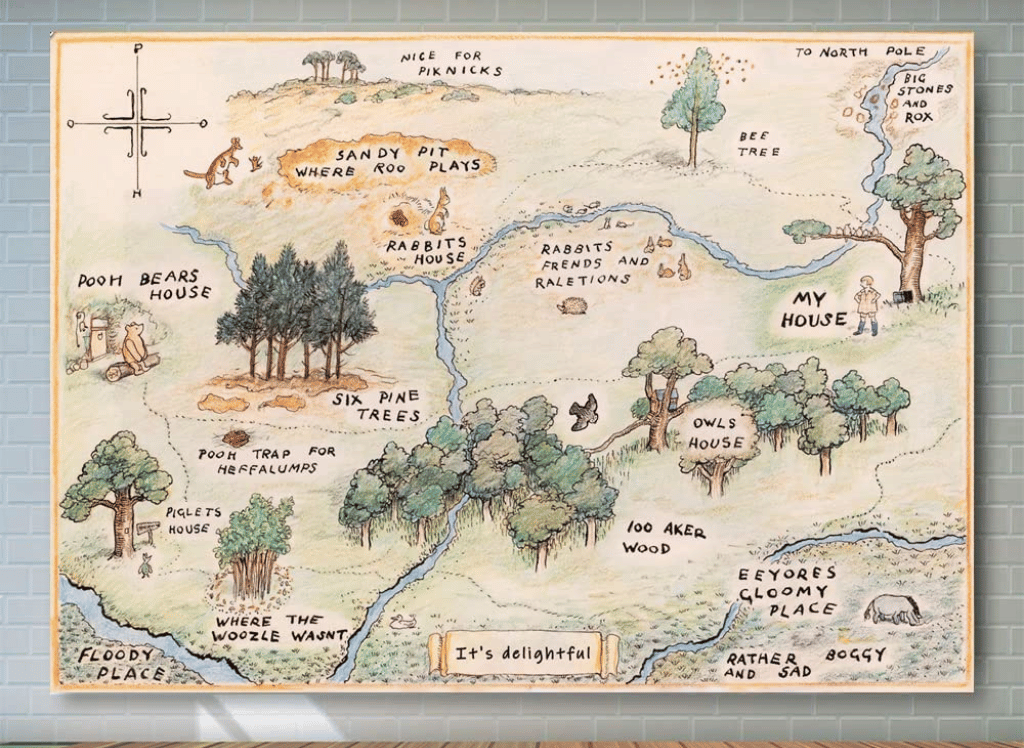 P
O
O
H
NICE FOR
PIKNICKS
TO NORTH POLE
BIG
STONES
AND
ROX
BEE
TREE
SANDY PIT
WHERE ROO PLAYS
RABBITS
HOUSE
RABBITS
FRENDS AND
RALETIONS
POOH BEARS
HOUSE
MY
HOUSE
SIX PINE
TREES
OWLS
HOUSE
POOH TRAP FOR
HEFFALUMPS
PIGLETS
HOUSE
100 AKER
WOOD
EEYORES
GLOOMY
PLACE
WHERE THE
WOOZLE WASNT
FLOODY
PLACE
It's delightful
RATHER BOGGY
AND SAD